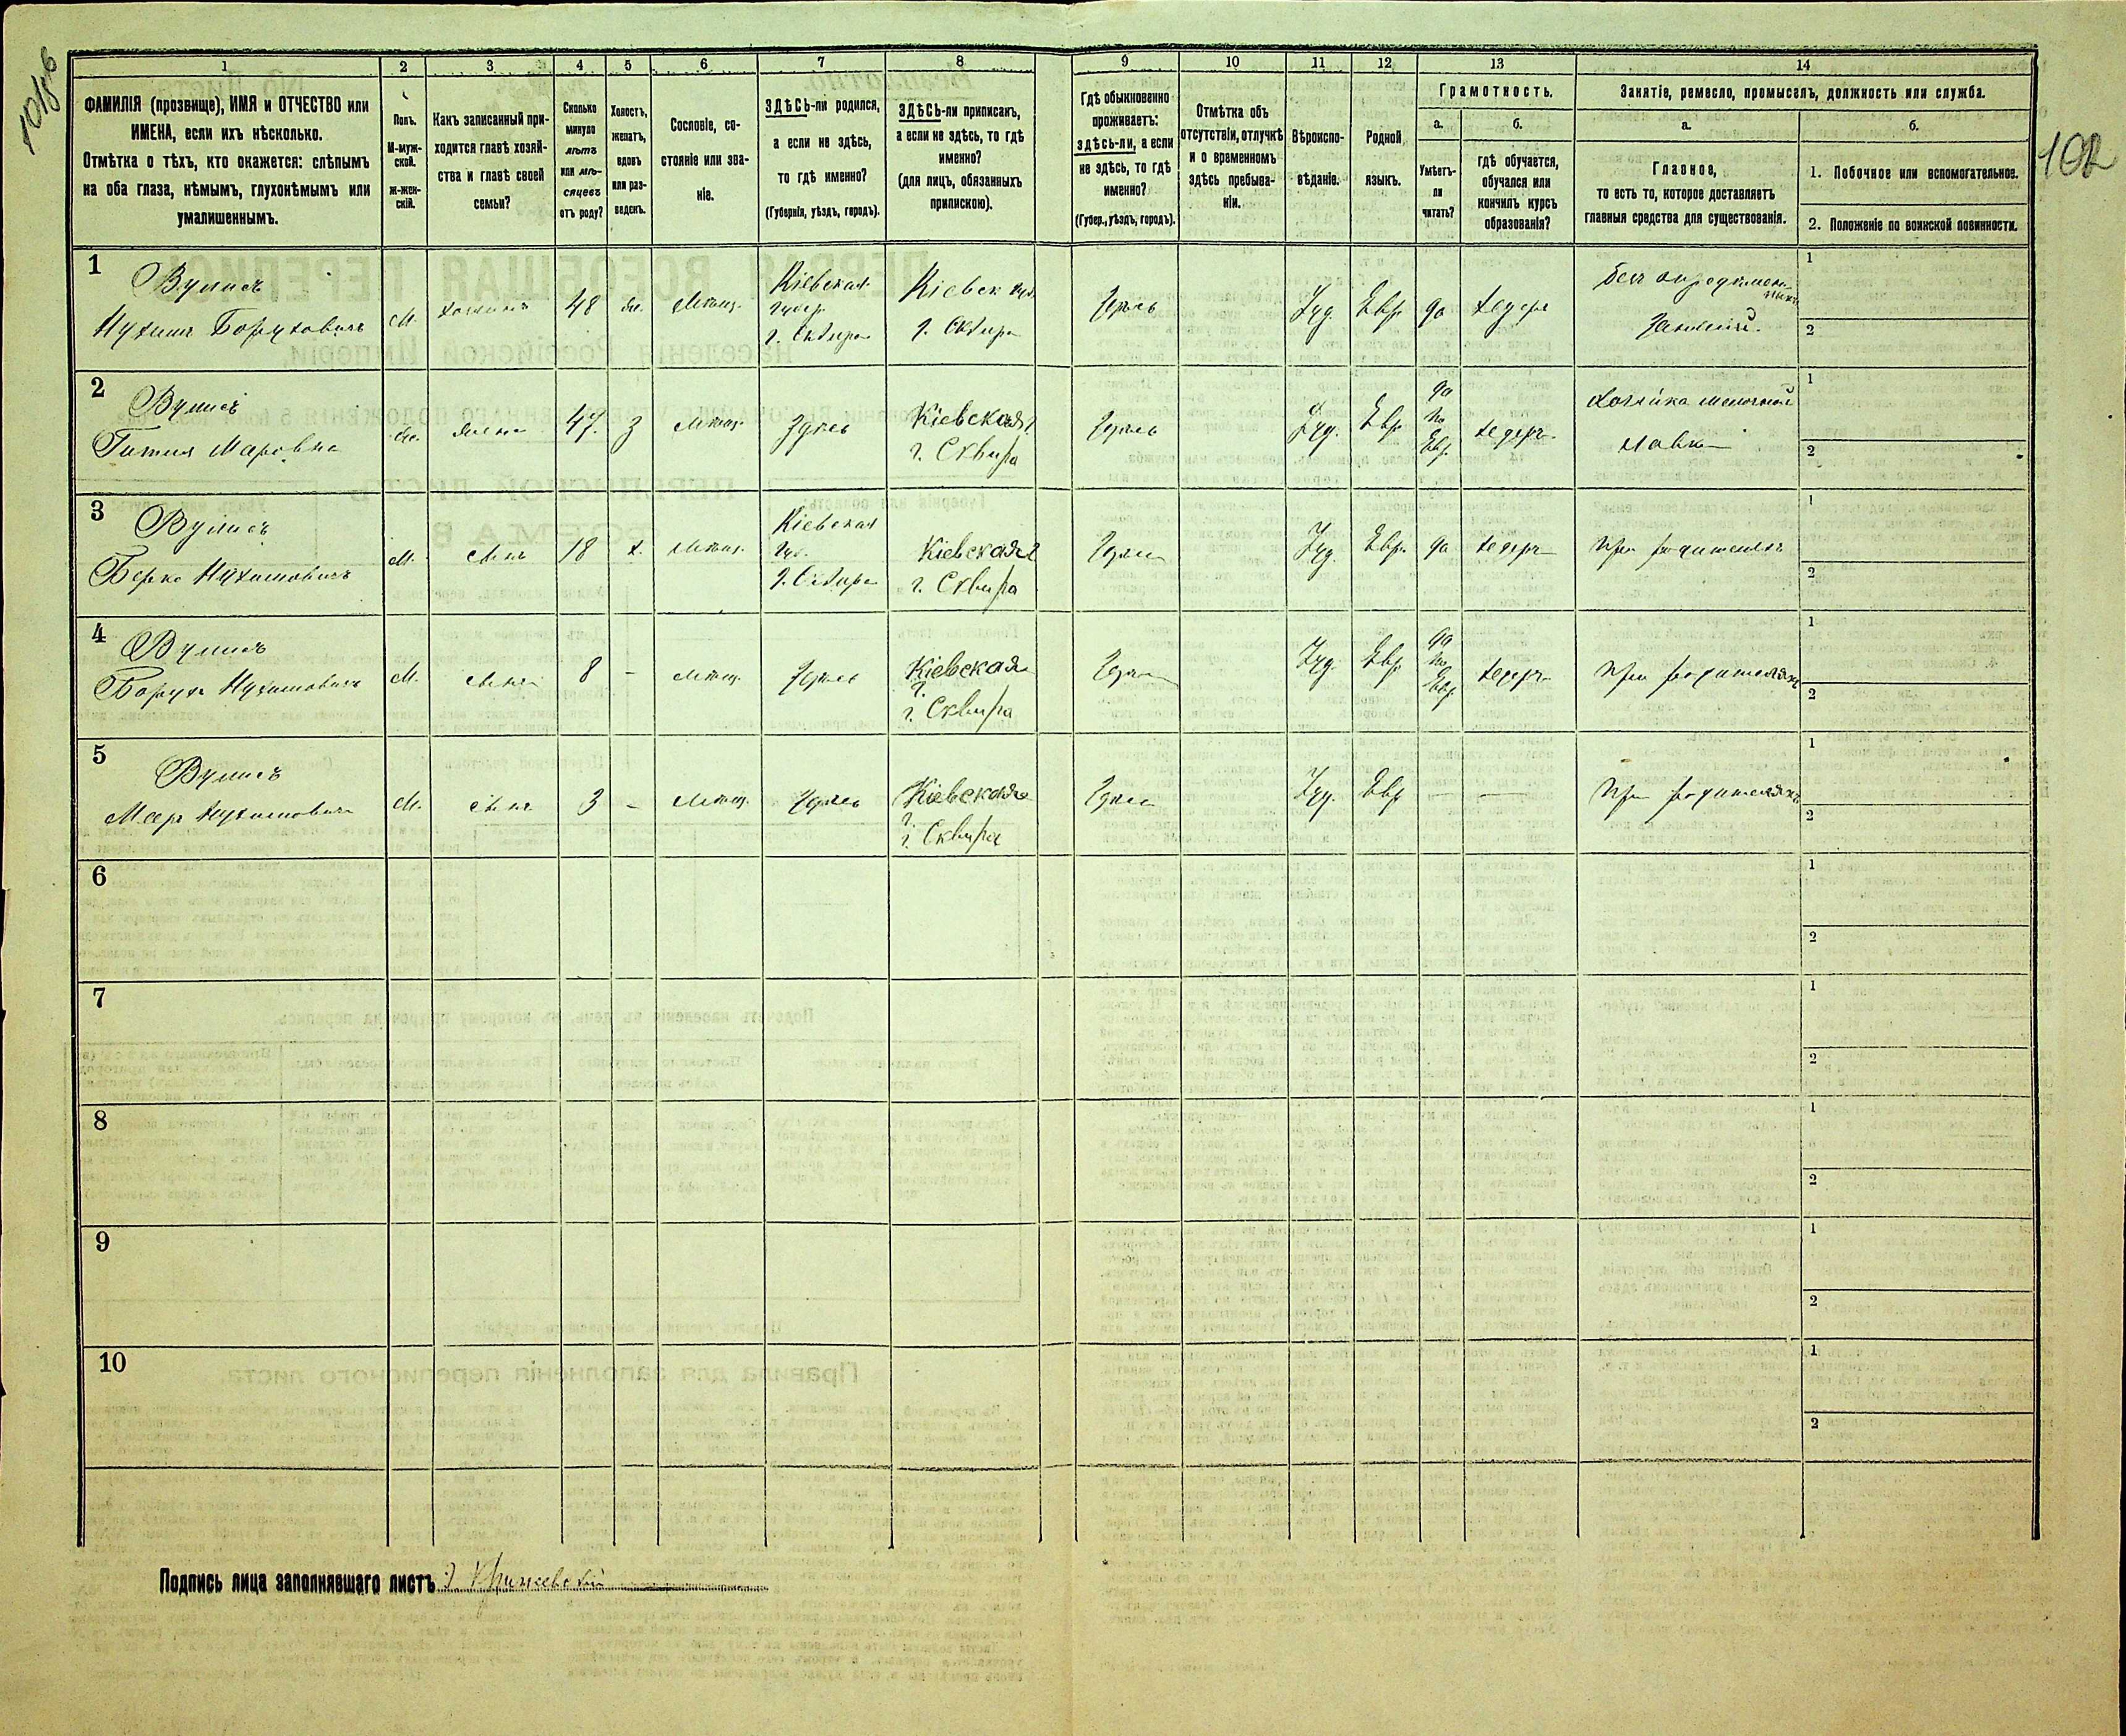 101об
102
1
2
3
4
5
6
7
8
9
10
11
12
13
14
ФАМИЛІЯ (прозвище), ИМЯ и ОТЧЕСТВО или
ИМЕНА, если ихъ нѣсколько.
Отмѣтка о тѣхъ, кто окажется: слѣпымъ
на оба глаза, нѣмымъ, глухонѣмымъ или
умалишеннымъ.
Полъ.
М-муж-
ской.
Ж-жен-
скій.
Какъ записанный при-
ходится главѣ хозяй-
ства и главѣ своей
семьи?
Сколько
минуло
лѣтъ
или мѣ-
сяцевъ
отъ роду?
Холостъ,
женатъ,
вдовъ
или раз-
веденъ.
Сословіе, со-
стояніе или зва-
ніе.
ЗДѢСЬ-ли родился,
а если не здѣсь,
то гдѣ именно?
(Губернія, уѣздъ, городъ).
ЗДѢСЬ-ли приписанъ,
а если не здѣсь, то гдѣ
именно?
(для лицъ, обязанныхъ
припискою).
Гдѣ обыкновенно
проживаетъ:
здѣсь-ли, а если
не здѣсь, то гдѣ
именно?
(Губер., уѣздъ, городъ).
Отмѣтка объ
отсутствіи, отлучкѣ
и о временномъ
здѣсь пребыва-
ніи.
Вѣроиспо-
вѣданіе.
Родной
языкъ.
Грамотность.
а.
Умѣетъ-
ли
читать?
б.
гдѣ обучается,
обучался или
кончилъ курсъ
образованія?
Занятіе, ремесло, промыселъ, должность или служба.
а.
Главное,
то есть то, которое доставляетъ
главныя средства для существованія.
б.
1. Побочное или вспомогательное.
2. Положеніе по воинской повинности.
1
Вулисъ
Нухимъ Боруховичъ
М.
хозяинъ
48
жен.
Мѣщ.
Кіевская
губер.
г. Сквира
Кіевск губ.
г. Сквира
Здѣсь
Іуд.
Евр.
да
хедеръ
безъ опредѣлен-
ныхъ
занятій.
1
2
2
Вулисъ
Гитля Маровна
Ж.
жена
47.
З
Мѣщ.
Здѣсь
Кіевская г.
г. Сквира
Здѣсь
Іуд.
Евр.
да
по
Евр.
хедеръ
Хозяйка мелочной
лавки
1
2
3
Вулисъ
Берко Нухимовичъ
М.
сынъ
18
х.
Мѣщ.
Кіевская
губ.
г. Сквира
Кіевская г
г. Сквира
Здѣсь
Іуд.
Евр.
да
хедеръ
при родителяхъ
1
2
4
Вулисъ
Борухъ Нухимовичъ
М.
сынъ
8
-
Мѣщ.
Здѣсь
Кіевская
г.
г. Сквира
Здѣсь
Іуд.
Евр.
да
по
Евр.
хедеръ
при родителяхъ
1
2
5
Вулисъ
Мееръ Нухимовичъ
М.
сынъ
3
-
Мѣщ.
Здѣсь
Кіевская
г.
г. Сквира
Здѣсь
Іуд.
Евр.
—
—
При родителяхъ
1
2
6
1
2
7
1
2
8
1
2
9
1
2
10
1
2
Подпись лица заполнявшаго листъ